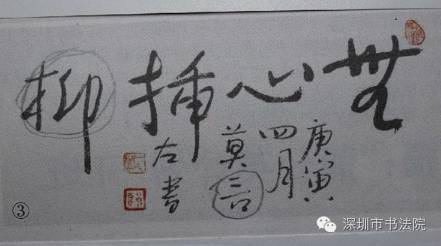 無心插柳
庚寅
四月
莫言
左書
③
深圳市书法院